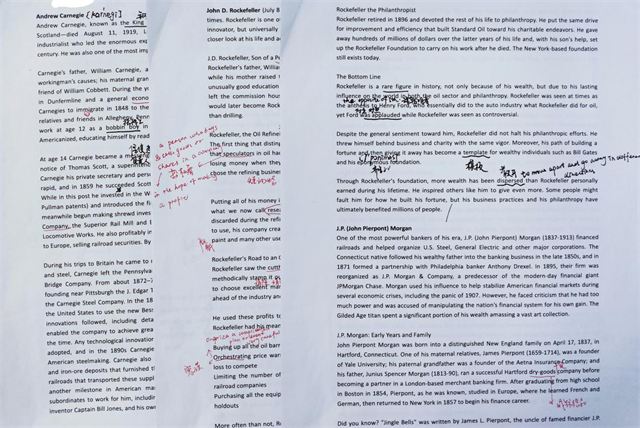 Andrew Carnegie
Andrew Carnegie, known as the King
Scotland—died August 11, 1919, L
industrialist who led the enormous exp
century. He was also one of the most imp
Carnegie's father, William Carnegie, a
workingman's causes; his maternal gran
friend of William Cobbett. During the y
in Dunfermline and a general econo
Carnegies to immigrate in 1848 to the
relatives and friends in Allegheny, Penn
work at age 12 as a bobbin boy in
Americanized, educating himself by read
At age 14 Carnegie became a
notice of Thomas Scott, a superintend
Carnegie his private secretary and perso
rapid, and in 1859 he succeeded Scott
While in this post he invested in the W
Pullman patents) and introduced the fi
meanwhile begun making shrewd inves
Company, the Superior Rail Mill and
Locomotive Works. He also profitably in
to Europe, selling railroad securities. By
During his trips to Britain he came to
and steel, Carnegie left the Pennsylva
Bridge Company. From about 1872–7
founding near Pittsburgh the J. Edgar T
the Carnegie Steel Company. In the 18
the United States to use the new Bess
innovations followed, including deta
enabled the company to achieve great
the time. Any technological innovation
adopted, and in the 1890s Carnegie
American steelmaking. Carnegie also
and iron-ore deposits that furnished th
railroads that transported these suppl
another milestone in American ma
subordinates to work for him, includin
inventor Captain Bill Jones, and his own
John D. Rockefeller (July 8
times. Rockefeller is one of
innovator, but universally
closer look at his life and a
J.D. Rockefeller, Son of a P
Rockefeller's father, William
while his mother raised
unusually good education
left the commission hous
would later become Rock
than drilling.
Rockefeller, the Oil Refine
The first thing that disting
that speculators in oil ha
losing money when they
chose the refining busine
Putting all of his money i
what we now call rese
discarded during the refi
to use, his company crea
paint and many other use
Rockefeller's Road to an O
Rockefeller saw the cutt
methodically stamp it ou
to choose excellent ma
ahead of the industry an
He used these profits to
Rockefeller had his mean
Buying up all the oil barr
Orchestrating price war
loss to compete
Limiting the number of
railroad companies
Purchasing all the equip
holdouts
More often than not, R
Rockefeller the Philanthropist
Rockefeller retired in 1896 and devoted the rest of his life to philanthropy. He put the same drive
for improvement and efficiency that built Standard Oil toward his charitable endeavors. He gave
away hundreds of millions of dollars over the latter years of his life and, with his son's help, set
up the Rockefeller Foundation to carry on his work after he died. The New York-based foundation
still exists today.
The Bottom Line
Rockefeller is a rare figure in history, not only because of his wealth, but due to his lasting
influence on the world in both the oil sector and philanthropy. Rockefeller was seen at times as
the antithesis to Henry Ford, who essentially did to the auto industry what Rockefeller did for oil,
yet Ford was applauded while Rockefeller was seen as controversial.
Despite the general sentiment toward him, Rockefeller did not halt his philanthropic efforts. He
threw himself behind business and charity with the same vigor. Moreover, his path of building a
fortune and then giving it away has become a template for wealthy individuals such as Bill Gates
and his eponymous foundation.
Through Rockefeller's foundation, more wealth has been dispersed than Rockefeller personally
earned during his lifetime. He inspired others like him to give even more. Some people might
fault him for how he built his fortune, but his business practices and his philanthropy have
ultimately benefited millions of people.
J.P. (John Pierpont) Morgan
One of the most powerful bankers of his era, J.P. (John Pierpont) Morgan (1837-1913) financed
railroads and helped organize U.S. Steel, General Electric and other major corporations. The
Connecticut native followed his wealthy father into the banking business in the late 1850s, and in
1871 formed a partnership with Philadelphia banker Anthony Drexel. In 1895, their firm was
reorganized as J.P. Morgan & Company, a predecessor of the modern-day financial giant
JPMorgan Chase. Morgan used his influence to help stabilize American financial markets during
several economic crises, including the panic of 1907. However, he faced criticism that he had too
much power and was accused of manipulating the nation's financial system for his own gain. The
Gilded Age titan spent a significant portion of his wealth amassing a vast art collection.
J.P. Morgan: Early Years and Family
John Pierpont Morgan was born into a distinguished New England family on April 17, 1837, in
Hartford, Connecticut. One of his maternal relatives, James Pierpont (1659-1714), was a founder
of Yale University; his paternal grandfather was a founder of the Aetna Insurance Company; and
his father, Junius Spencer Morgan (1813-90), ran a successful Hartford dry-goods company before
becoming a partner in a London-based merchant banking firm. After graduating from high school
in Boston in 1854, Pierpont, as he was known, studied in Europe, where he learned French and
German, then returned to New York in 1857 to begin his finance career.
Did you know? "Jingle Bells" was written by James L. Pierpont, the uncle of famed financier J.P.